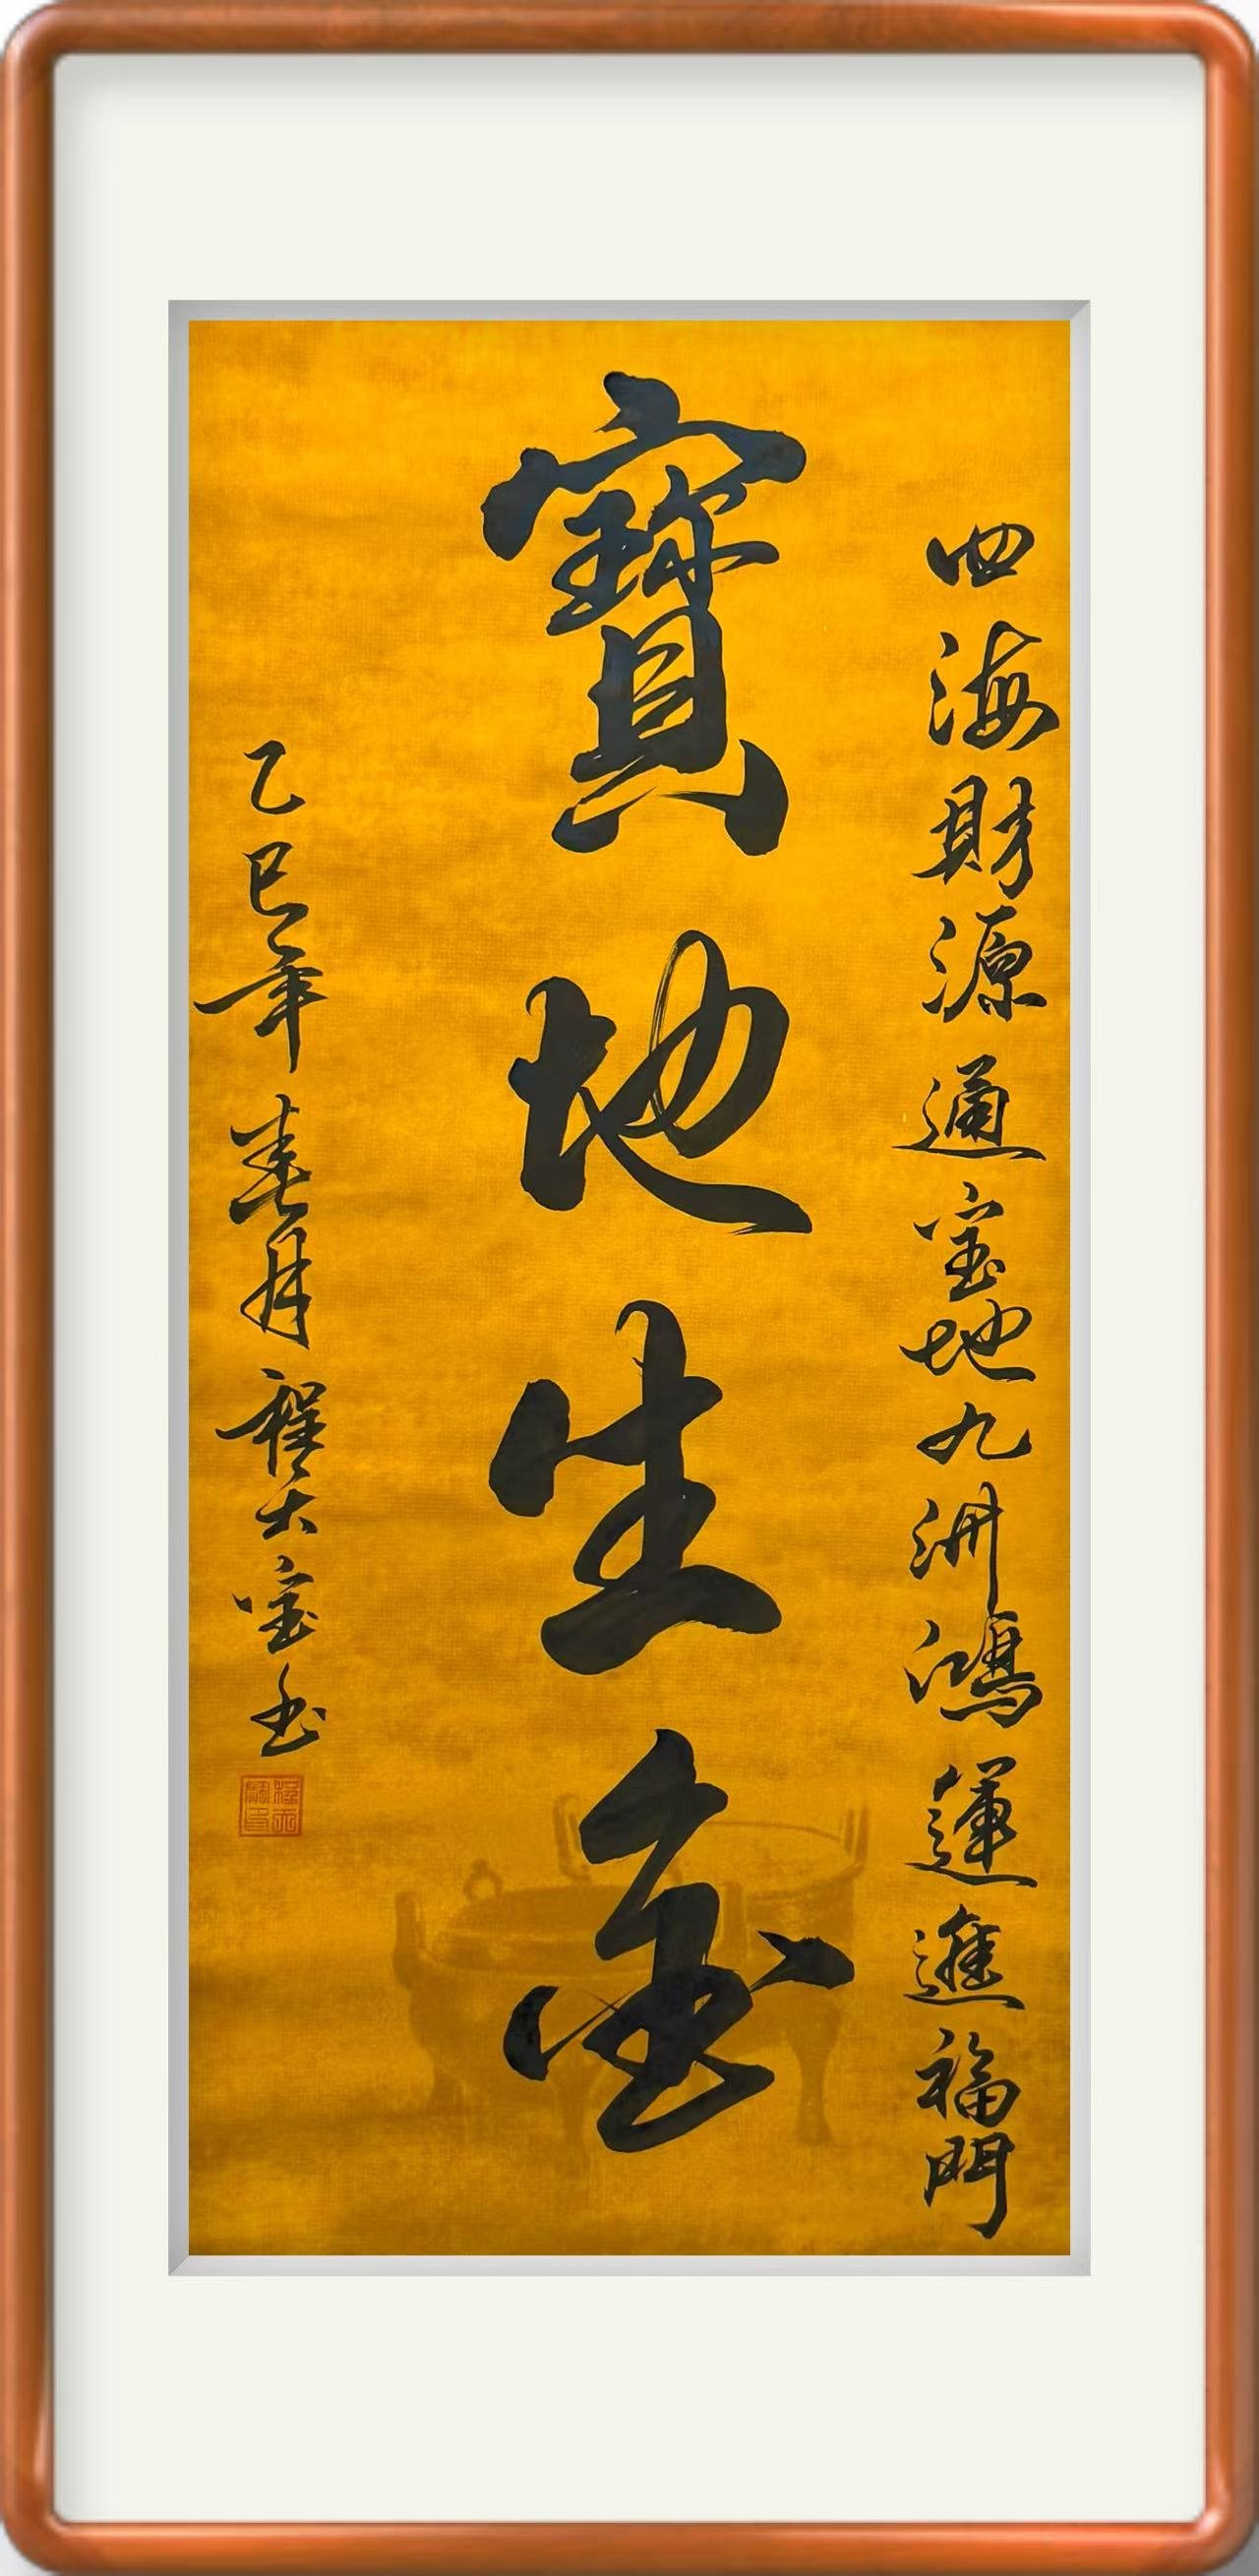 四海財源通宝地九洲鴻運進福門
寶地生金
乙巳年春月程大宝书